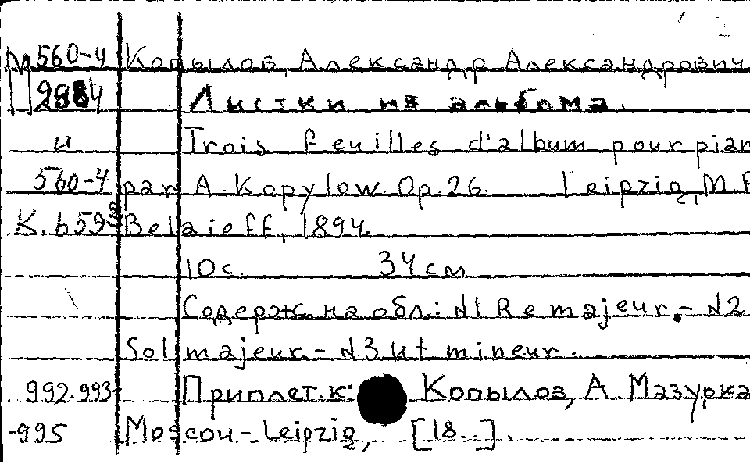 М560-4 Копылов, Александр Александрович
2984 Листки из альбома.
и Trois feuilles d'album pour pian
560-4 par A. Kopylow. Op. 26. Leipzig, M.P.
K. 6593 Belaieff, 1894.
10 с. 34 см
Содерж. на обл.: N1 Re majeur. - N2
Sol majeur. - N3 Ut mineur.
992.993- Приплет. к: Копылов, А. Мазурка
-995 Moscou - Leipzig, [18..].